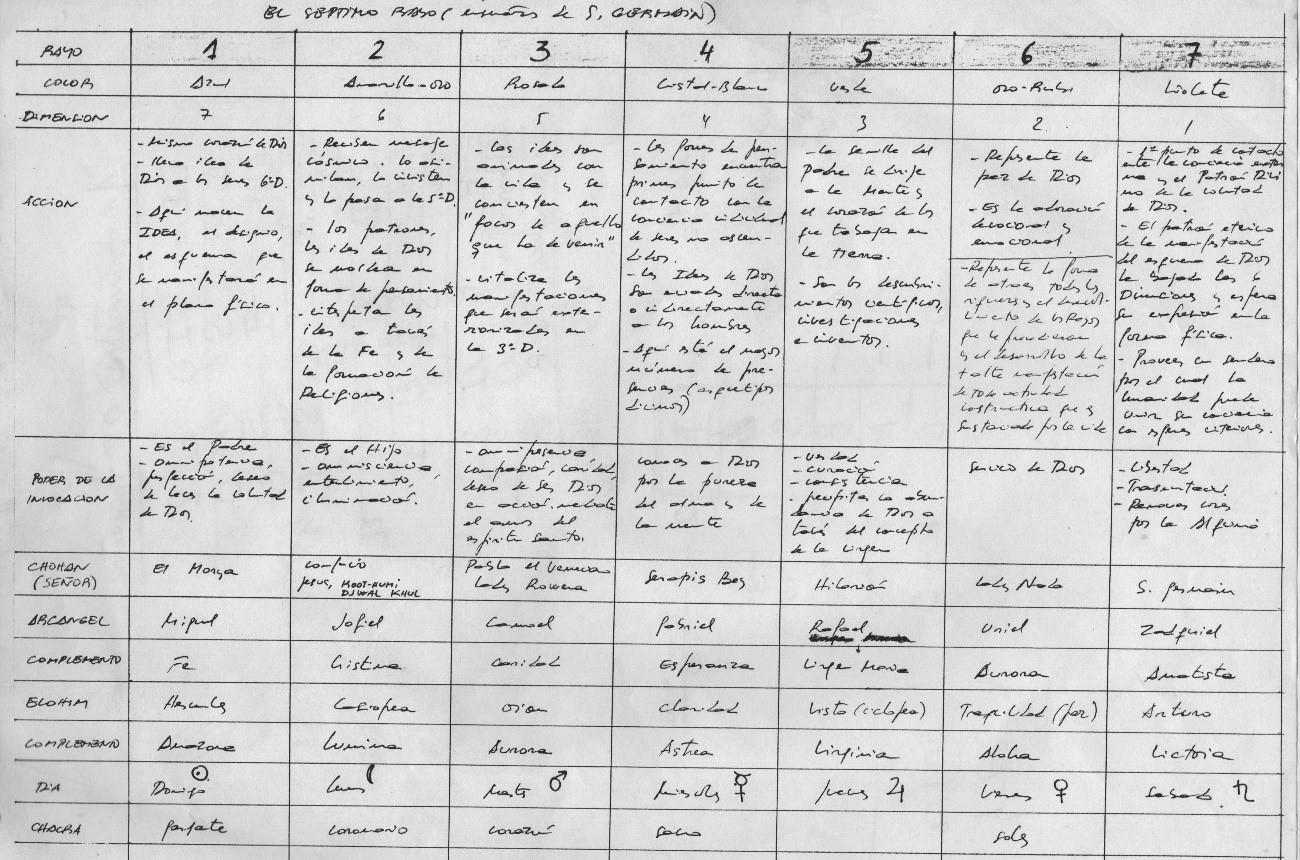 EL SEPTIMO RAYO ( de S. GERMAIN)
RAYO 1 2 3 4 5 6 7
COLOR Azul Amarillo-oro Rosado Cristal-Blanco Verde Oro-Rubi Violeta
DIMENSION 7 6 5 4 3 2 1
ACCION
- Mismo corazón de Dios
- Lleva idea de
Dios a los seres 6ªD.
- Aquí nacen la
IDEA, el designio,
el esquema que
se manifestará en
el plano físico.
- Reciben mensaje
cósmico. Lo asi-
milan, lo invisten
y lo pasa a la 5ªD.
- Los patrones,
las ideas de Dios
se moldea en
forma de pensamiento.
- Interpreta las
ideas a través
de la Fe y de
la formación de
Religiones.
- Las ideas son
animadas con
la vida y se
convierten en
"focos de aquello
que ha de venir"
- vitaliza las
manifestaciones
que serán exte-
riorizadas en
la 3ªD.
- Las formas de pen-
samiento encuentra
primer punto de
contacto con la
conciencia individual
de seres no ascen-
didos.
- Las Ideas de Dios
son enviadas directa
o indirectamente
a los hombres
- Aquí está el mayor
número de pre-
sencias (arquetipos
divinos)
- La semilla del
Padre se dirije
a la Mente y
el corazón de los
que trabajan en
la tierra.
- Son los descubri-
mientos científicos,
investigaciones
e inventos.
- Representa la
paz de Dios
- Es la adoración
devocional y
emocional
- Representa la forma
de atraer todas las
riquezas y el
de los Rayos
que la
y el desarrollo de la
manifestación
de toda actividad
constructiva que es
sustentada por la vida
- 1º punto de contacto
entre la conciencia exter-
na y el Patrón Divi-
no de la voluntad
de Dios.
- El patrón etérico
de la manifestación
del esquema de Dios
ha bajado las 6
Dimensiones y espera
su expresión en la
forma física.
- Provee un sendero
por el cual la
humanidad puede
unir su conciencia
con esferas interiores.
PODER DE LA
INVOCACION
- Es el Padre
- omnipotencia,
perfección, deseo
de hacer la voluntad
de Dios.
- Es el Hijo
- omnisciencia,
entendimiento,
iluminación.
- omnipresencia
compasión, caridad,
deseo de ser Dios
en acción mediante
el amor del
espíritu santo.
conocer a Dios
por la pureza
del alma y de
la mente
- verdad
- curación
- consistencia
- precipita la abun-
dancia de Dios a
través del concepto
de la virgen
servicio de Dios
- Libertad
- Trasmutación.
- Renovar
por la Alquimia
CHOHAN
(SEÑOR)
El Morya
Confucio
Jesus, KOOT-HUMI
DJWAL KHUL
Pablo el Veneciano
Lady Rowena
Serapis Bey
Hilarión
Lady Nada
S. Germain
ARCANGEL Miguel Jofiel Camael Gabriel Rafael Uriel Zadquiel
COMPLEMENTO Fe Cristina Caridad Esperanza Virgen María Aurora Amatista
ELOHIM Hercules Casiopea Orion Claridad Vista (ciclopea) Tranquilidad (paz) Arturo
COMPLEMENTO Amazona Lumina Aurora Astrea Virginia Aloha Victoria
DIA Domingo ☉ Lunes ☾ Martes ♂ Miercoles ☿ Jueves ♃ Viernes ♀ Sabado ♄
CHACRA garganta coronario corazón sacro solar